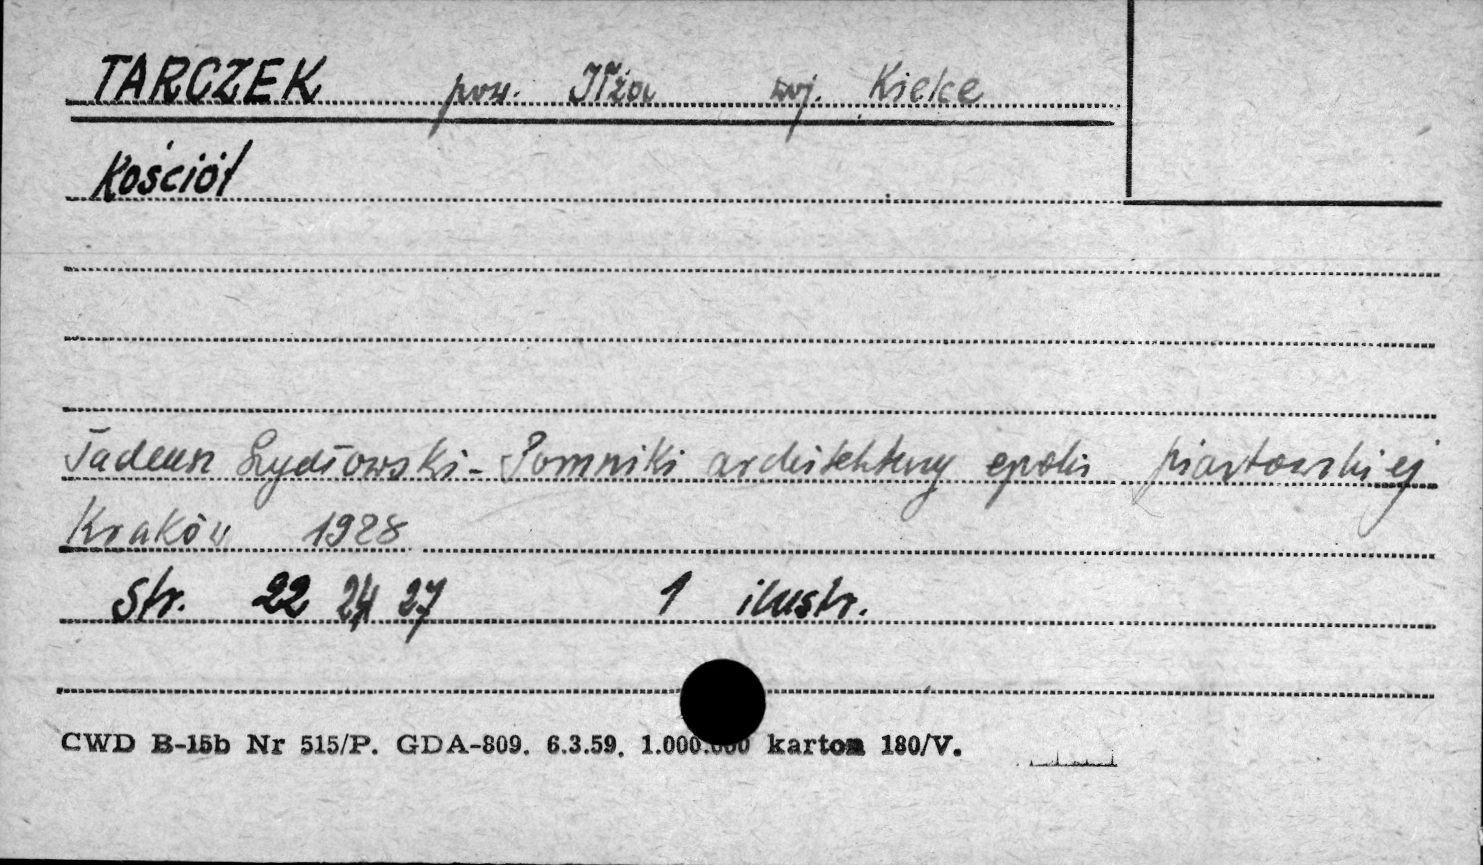 TARCZEK pow. Iłża woj. Kielce
Kościół
Tadeusz Szydłowski - Pomniki architektury epoki piastowskiej
Kraków 1928
str. 22 24 27 1 ilustr.
CWD B-15b Nr 515/P. GDA-809. 6.3.59. 1.000.000 karton 180/V.